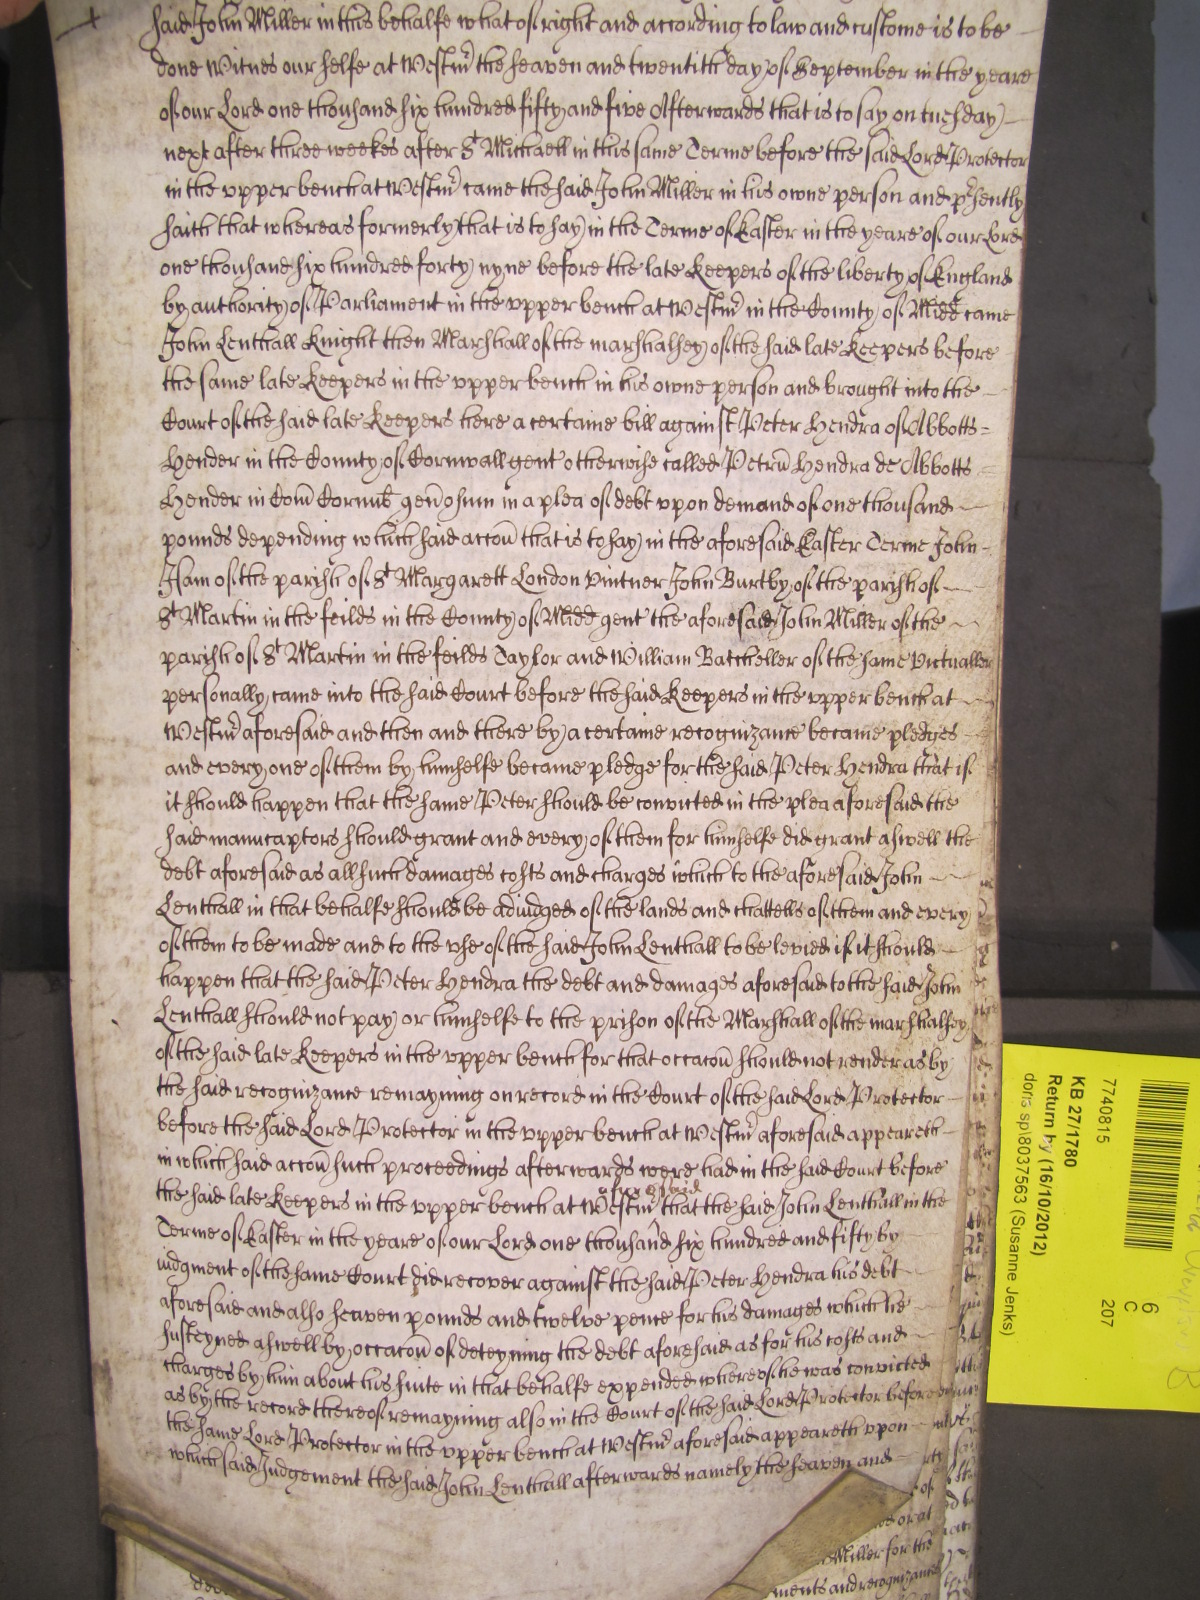 said John Miller in this behalfe what of right and according to law and custome is to be
done Witnes our selfe at Westm̃ the seaven and twentith day of September in the yeare
of our Lord one thousand six hundred fifty and five Afterwards that is to say on tuesday
next after three weekes after St Michaell in this same Terme before the said Lord Protector
in the upper bench at Westm̃ came the said John Miller in his owne person and p̃sently
saith that whereas formerly (that is to say) in the Terme of Easter in the yeare of our Lord
one thousand six hundred forty nyne before the late Keepers of the liberty of England
by authority of Parliament in the upper bench at Westm̃ in the County of Midd came
John Lenthall Knight then Marshall of the marshalsey of the said late Keepers before
the same late Keepers in the upper bench in his owne person and brought into the
Court of the said late Keepers here a certaine bill against Peter Hendra of Abbotts=
Hender in the County of Cornwall gent otherwise called Petrũ Hendra de Abbotts
Hender in Com̃ Cornub̃ gen̄osum in a plea of debt upon demand of one thousand
pounds depending which said accon̄ that is to say in the aforesaid Easter Terme John
Isam of the parish of St Margarett London vintner John Burtby of the parish of
St Martin in the feilds in the County of Midd gent the aforesaid John Miller of the
parish of St Martin in the feilds Taylor and William Batcheller of the same victualler
personally came into the said Court before the said Keepers in the upper bench at
Westm̃ aforesaid and then and there by a certaine recognizance became pledges
and every one of them by himselfe became pledge for the said Peter Hendra that if
it should happen that the same Peter should be convicted in the plea aforesaid the
said manucaptors should grant and every of them for himselfe did grant aswell the
debt aforesaid as all such damages costs and charges which to the aforesaid John
Lenthall in that behalfe should be adiudged of the lands and chattells of them and every
of them to be made and to the use of the said John Lenthall to be levied if it should
happen that the said Peter Hendra the debt and damages aforesaid to the said John
Lenthall should not pay or himselfe to the prison of the Marshall of the marshalsey
of the said late Keepers in the upper bench for that occacon̄ should not render as by
the said recognizance remayning on record in the Court of the said Lord Protector
before the said Lord Protector in the upper bench at Westm̃ aforesaid appeareth
in which said accon̄ such proceedings afterwards were had in the said Court before
aforesaid
the said late Keepers in the upper bench at Westm̃ that the said John Lenthall in the
Terme of Easter in the yeare of our Lord one thousand six hundred and fifty by
iudgment of the same Court did recover against the said Peter Hendra his debt
aforesaid and also seaven pounds and twelve pence for his damages which he
susteyned aswell by occacon̄ of deteyning the debt aforesaid as for his costs and
charges by him about his suite in that behalfe expended whereof he was convicted
as by the record thereof remayning also in the Court of the said Lord Protector before
the same Lord Protector in the upper bench at Westm̃ aforesaid appeareth upon
which said Judgement the said John Lenthall afterwards namely the seaven and
Miller for the
ments and recognizance
7740815
KB 27/1780
Return by (16/10/2012)
doris sp\8037563 (Susanne Jenks)
6
C
207